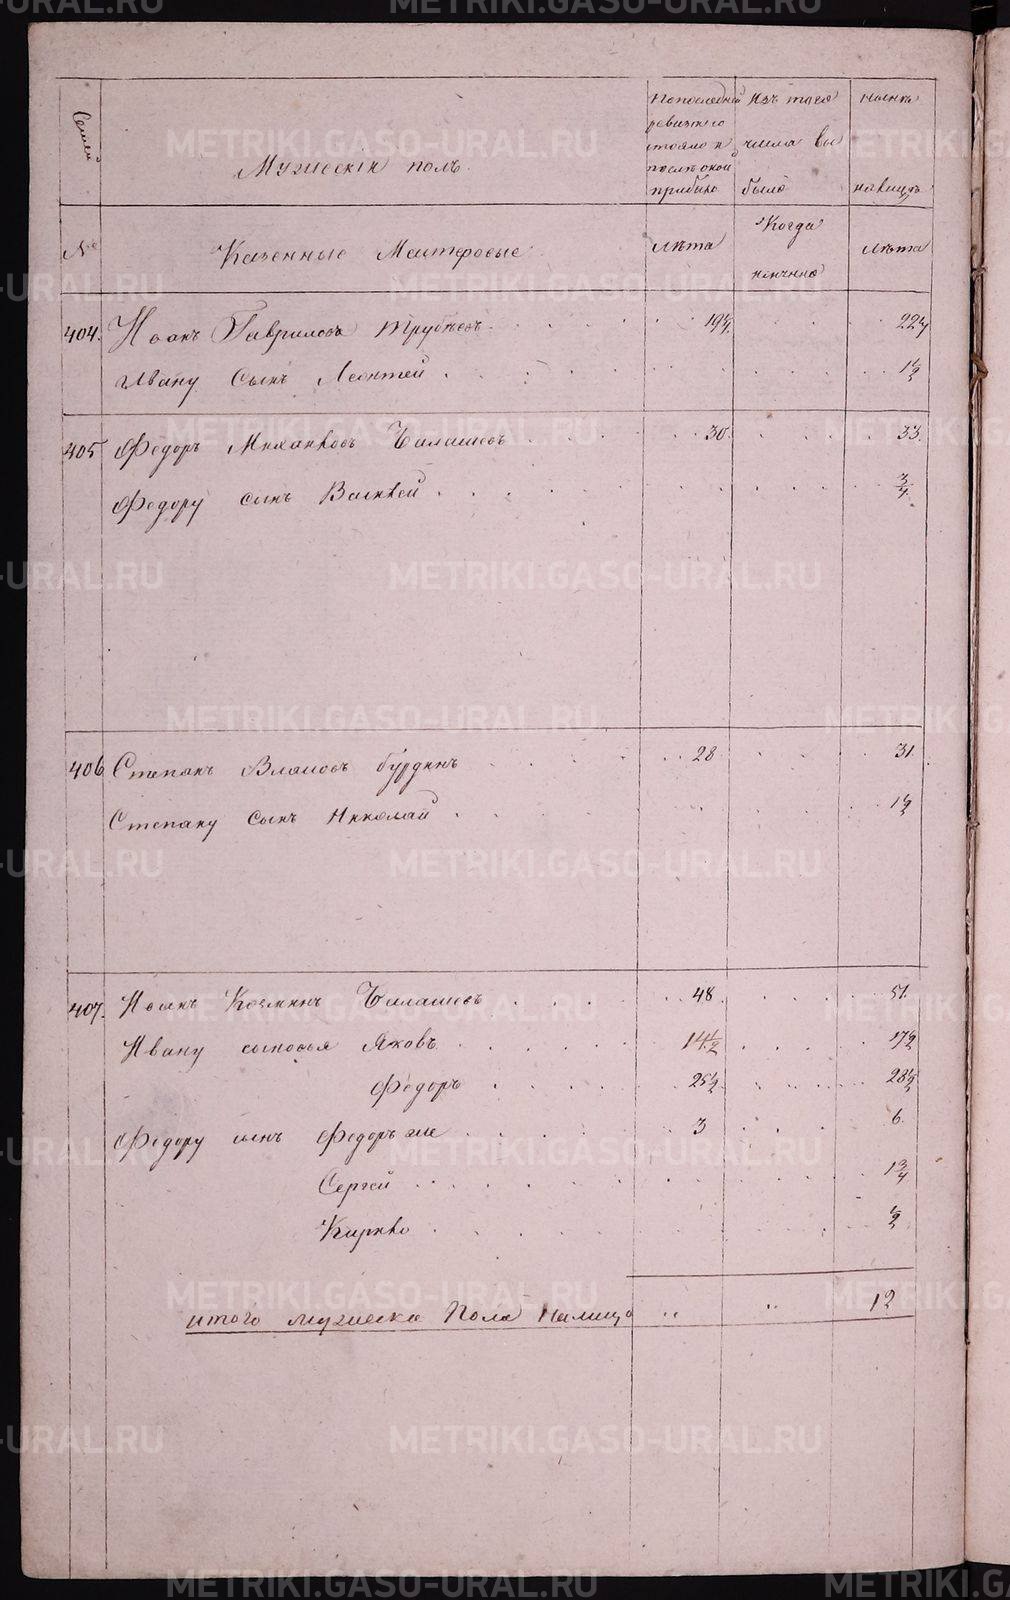 METRIKI.GASO-URAL.RU
Семей
Мужескiй полъ.
По последней ревизiи состояло и после оной прибыло
Изъ того числа выбыло
Ныне на лицо
№
Казенные Мастеровые
Лѣта
Когда именно
Лѣта
404. Иванъ Гавриловъ Трубѣевъ 22
Ивану сынъ Леонтей 1½
405 Федоръ Михайловъ Балашовъ 30. 33.
Федору сынъ Василей ¾
406 Степанъ Власовъ Бурдинъ 28 31
Степану сынъ Николай 1½
407. Иванъ Козминъ Балашовъ 48 51.
Ивану сыновья Яковъ 14½ 17½
Федоръ 25½ 28½
Федору сынъ Федоръ же 3 6.
Сергей 1¾
Карпъ ½
итого мужеска Пола Налицо " " 12